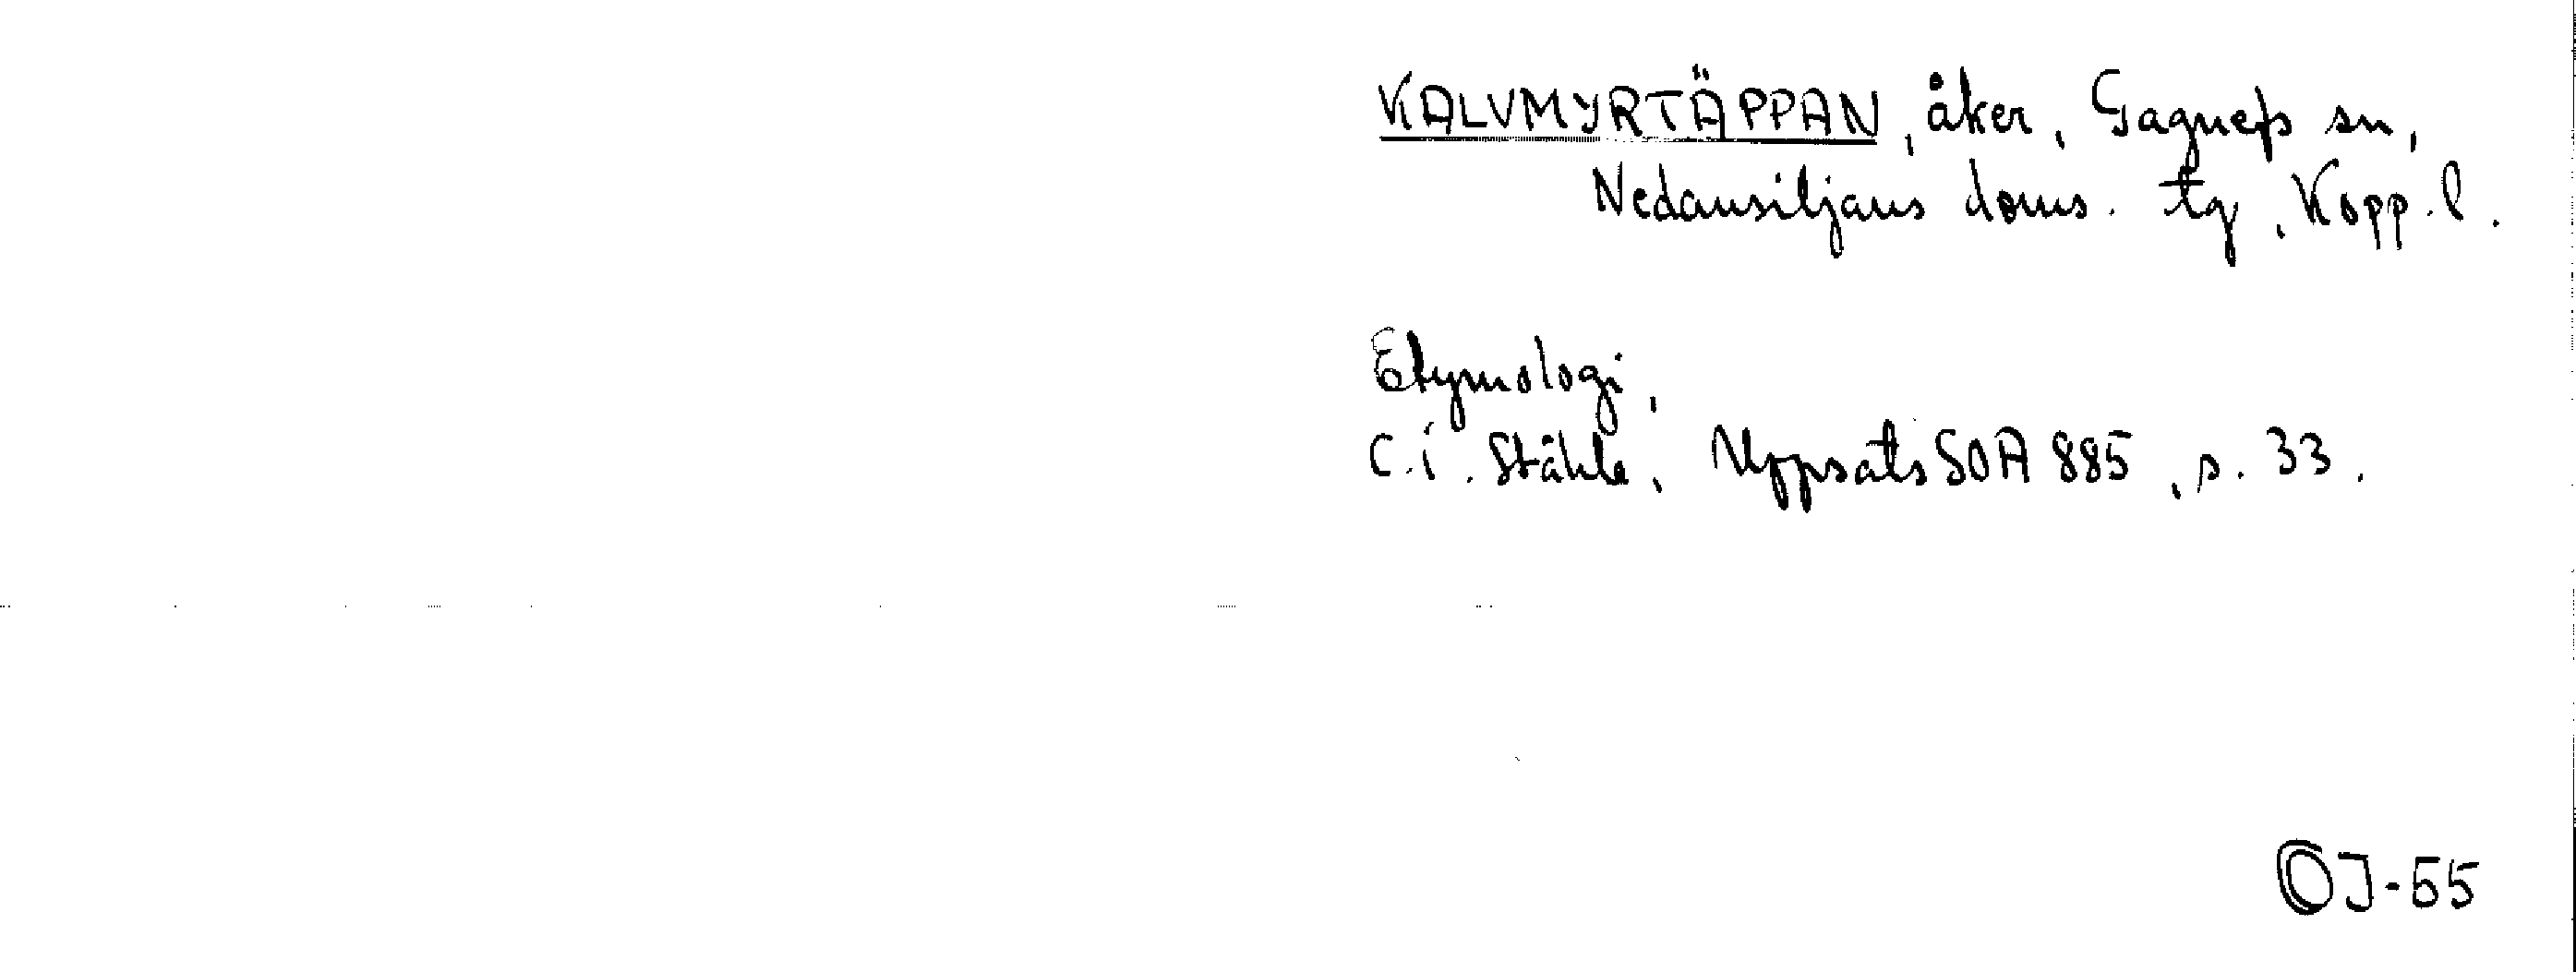 KALVMYRTÄPPAN, åker, Gagnefs sn,
Nedansiljans doms. tg, Kopp. l.
Etymologi,
C.I. Ståhle, Uppsats SOA 885, s. 33.
OJ-55